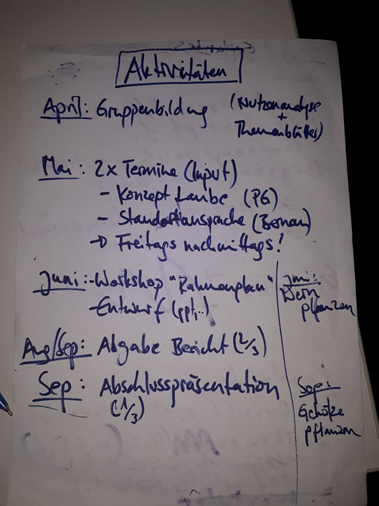 Aktivitäten
April: Gruppenbildung (Nutzenanalyse
+
Themenblätter)
Mai: 2x Termine (Input)
- Konzept Laube (PG)
- Standortansprache
→ Freitags nachmittags!
Juni: - Workshop "Rahmenplan"
- Entwurf (ppt..)
Juni:
Wein
pflanzen
Aug/Sep: Abgabe Bericht (2/3)
Sep: Abschlusspräsentation
(1/3)
Sep:
Gehölze
pflanzen